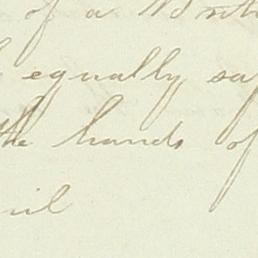 of a
equally sa
the hands of
il